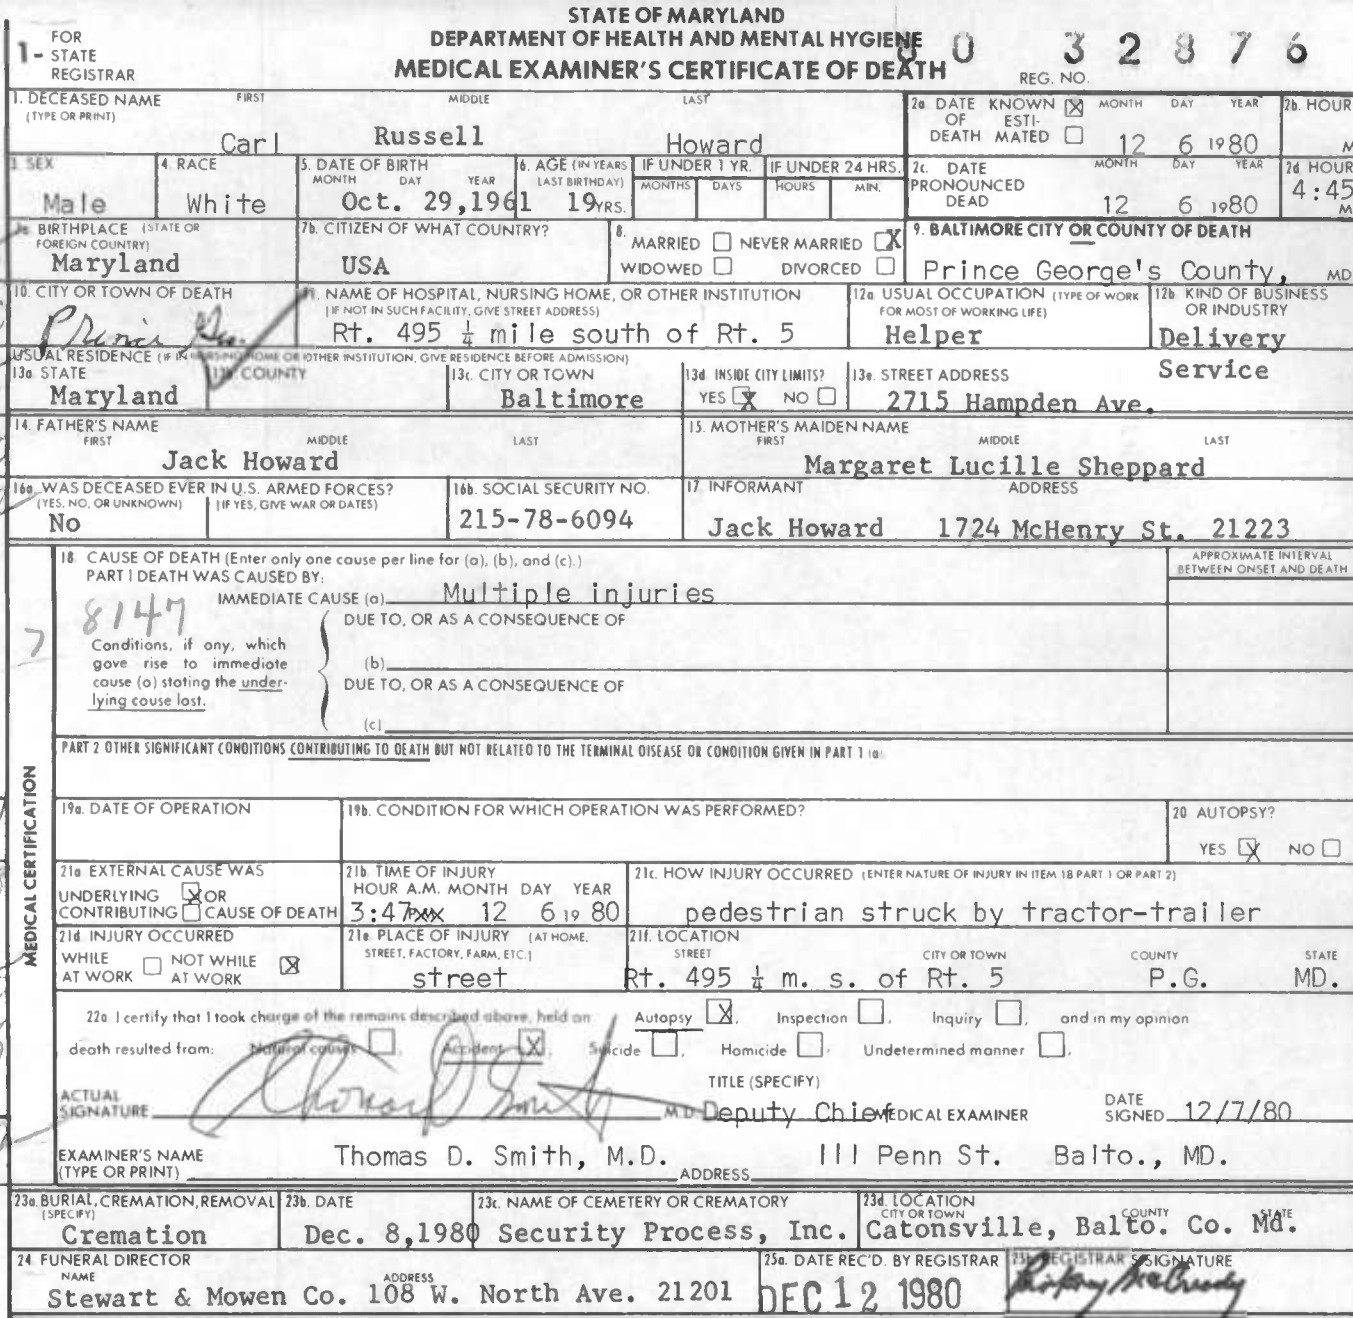 STATE OF MARYLAND
DEPARTMENT OF HEALTH AND MENTAL HYGIENE
MEDICAL EXAMINER'S CERTIFICATE OF DEATH
1- FOR STATE REGISTRAR
REG. NO. 80 32876
1. DECEASED NAME (TYPE OR PRINT) FIRST MIDDLE LAST
Carl Russell Howard
2a DATE OF DEATH KNOWN [X] ESTIMATED [ ] MONTH DAY YEAR
12 6 1980
2b. HOUR M
3 SEX
Male
4. RACE
White
5. DATE OF BIRTH MONTH DAY YEAR
Oct. 29,1961
6. AGE (IN YEARS LAST BIRTHDAY)
19 YRS.
IF UNDER 1 YR. MONTHS DAYS
IF UNDER 24 HRS. HOURS MIN.
2c. DATE PRONOUNCED DEAD MONTH DAY YEAR
12 6 1980
2d HOUR
4:45 M
BIRTHPLACE (STATE OR FOREIGN COUNTRY)
Maryland
7b. CITIZEN OF WHAT COUNTRY?
USA
8. MARRIED [ ] NEVER MARRIED [X]
WIDOWED [ ] DIVORCED [ ]
9. BALTIMORE CITY OR COUNTY OF DEATH
Prince George's County, MD
10. CITY OR TOWN OF DEATH
Prince Geo.
11. NAME OF HOSPITAL, NURSING HOME, OR OTHER INSTITUTION
(IF NOT IN SUCH FACILITY, GIVE STREET ADDRESS)
Rt. 495 ¼ mile south of Rt. 5
12a USUAL OCCUPATION (TYPE OF WORK FOR MOST OF WORKING LIFE)
Helper
12b. KIND OF BUSINESS OR INDUSTRY
Delivery
Service
USUAL RESIDENCE (IF IN NURSING HOME OR OTHER INSTITUTION, GIVE RESIDENCE BEFORE ADMISSION)
13a STATE
Maryland
13b. COUNTY
13c. CITY OR TOWN
Baltimore
13d. INSIDE CITY LIMITS?
YES [X] NO [ ]
13e. STREET ADDRESS
2715 Hampden Ave.
14. FATHER'S NAME FIRST MIDDLE LAST
Jack Howard
15. MOTHER'S MAIDEN NAME FIRST MIDDLE LAST
Margaret Lucille Sheppard
16a. WAS DECEASED EVER IN U.S. ARMED FORCES?
(YES, NO, OR UNKNOWN) (IF YES, GIVE WAR OR DATES)
No
16b. SOCIAL SECURITY NO.
215-78-6094
17. INFORMANT ADDRESS
Jack Howard 1724 McHenry St. 21223
18 CAUSE OF DEATH (Enter only one cause per line for (a), (b), and (c).)
PART I DEATH WAS CAUSED BY:
APPROXIMATE INTERVAL BETWEEN ONSET AND DEATH
IMMEDIATE CAUSE (a) Multiple injuries
7 8147
DUE TO, OR AS A CONSEQUENCE OF
Conditions, if any, which gave rise to immediate cause (a) stating the underlying cause last.
(b)
DUE TO, OR AS A CONSEQUENCE OF
(c)
PART 2 OTHER SIGNIFICANT CONDITIONS CONTRIBUTING TO DEATH BUT NOT RELATED TO THE TERMINAL DISEASE OR CONDITION GIVEN IN PART 1 (a)
MEDICAL CERTIFICATION
19a. DATE OF OPERATION
19b. CONDITION FOR WHICH OPERATION WAS PERFORMED?
20 AUTOPSY?
YES [X] NO [ ]
21a EXTERNAL CAUSE WAS
UNDERLYING [X] OR
CONTRIBUTING [ ] CAUSE OF DEATH
21b TIME OF INJURY
HOUR A.M. MONTH DAY YEAR
3:47 12 6 19 80
21c. HOW INJURY OCCURRED (ENTER NATURE OF INJURY IN ITEM 18 PART 1 OR PART 2)
pedestrian struck by tractor-trailer
21d INJURY OCCURRED
WHILE AT WORK [ ] NOT WHILE AT WORK [X]
21e PLACE OF INJURY (AT HOME, STREET, FACTORY, FARM, ETC.)
street
21f. LOCATION
STREET CITY OR TOWN COUNTY STATE
Rt. 495 ¼ m. s. of Rt. 5 P.G. MD.
22a I certify that I took charge of the remains described above, held an Autopsy [X], Inspection [ ], Inquiry [ ], and in my opinion
death resulted from: Natural causes [ ], Accident [X], Suicide [ ], Homicide [ ], Undetermined manner [ ].
ACTUAL SIGNATURE Thomas D. Smith M.D.
TITLE (SPECIFY)
Deputy Chief MEDICAL EXAMINER
DATE SIGNED 12/7/80
EXAMINER'S NAME (TYPE OR PRINT) Thomas D. Smith, M.D. ADDRESS 111 Penn St. Balto., MD.
23a BURIAL, CREMATION, REMOVAL (SPECIFY)
Cremation
23b. DATE
Dec. 8,1980
23c. NAME OF CEMETERY OR CREMATORY
Security Process, Inc.
23d. LOCATION CITY OR TOWN COUNTY STATE
Catonsville, Balto. Co. Md.
24 FUNERAL DIRECTOR
NAME ADDRESS
Stewart & Mowen Co. 108 W. North Ave. 21201
25a. DATE REC'D. BY REGISTRAR
DEC 12 1980
25b. REGISTRAR'S SIGNATURE